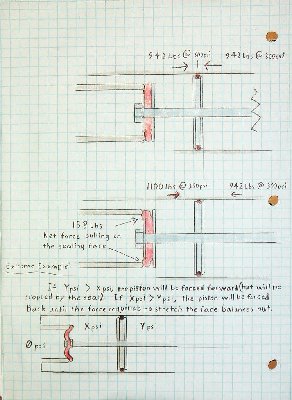 942 lbs @ 300psi 942 lbs @ 300psi
1100 lbs @ 350psi 942 lbs @ 300psi
158 lbs
Net force pulling on
the sealing face
Extreme Example
If Ypsi > Xpsi, the piston will be forced forward (but will be
stopped by the seal). If Xpsi > Ypsi, the piston will be forced
back until the force required to stretch the face balances out.
Xpsi Ypsi
0 psi